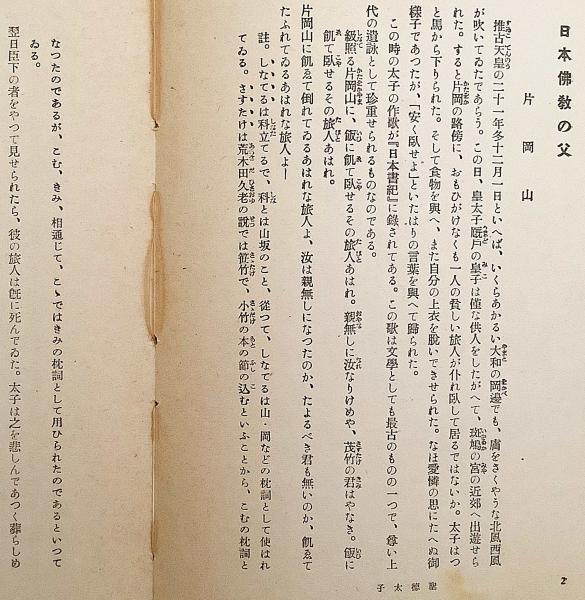 日本佛敎の父
片岡山
推古天皇の二十一年冬十二月一日といへば、いくらあかるい大和の岡邊でも、膚をさくやうな北風西風
が吹いてゐたであらう。この日、皇太子厩戸の皇子は僅な供人をしたがへて、斑鳩の宮の近郊へ出遊せら
れた。すると片岡の路傍に、おもひがけなくも一人の貧しい旅人が仆れ臥して居るではないか。太子はつ
と馬から下りられた。そして食物を與へ、また自分の上衣を脫いできせられた。なほ愛憐の思にたへぬ御
樣子であつたが、「安く臥せよ」といたはりの言葉を與へて歸られた。
この時の太子の作歌が『日本書紀』に錄されてある。この歌は文學としても最古のものの一つで、尊い上
代の遺詠として珍重せられるものなのである。
級照る片岡山に、飯に飢て臥せるその旅人あはれ。親無しに汝なりけめや、茂竹の君はやなき。飯に
飢て臥せるその旅人あはれ。
片岡山に飢ゑて倒れてゐるあはれな旅人よ、汝は親無しになつたのか、たよるべき君も無いのか、飢ゑて
たふれてゐるあはれな旅人よ―
註。しなてるは科立てるで、科とは山坂のこと、從つて、しなてるは山・岡などの枕詞として使はれ
てゐる。さすたけは荒木田久老の說では笹竹で、小竹の本の節の込むといふことから、こむの枕詞と
なつたのであるが、こむ、きみ、相通じて、こゝではきみの枕詞として用ひられたのであるといつて
ゐる。
翌日臣下の者をやつて見せられたら、彼の旅人は旣に死んでゐた。太子は之を悲しんであつく葬らしめ
聖德太子
2